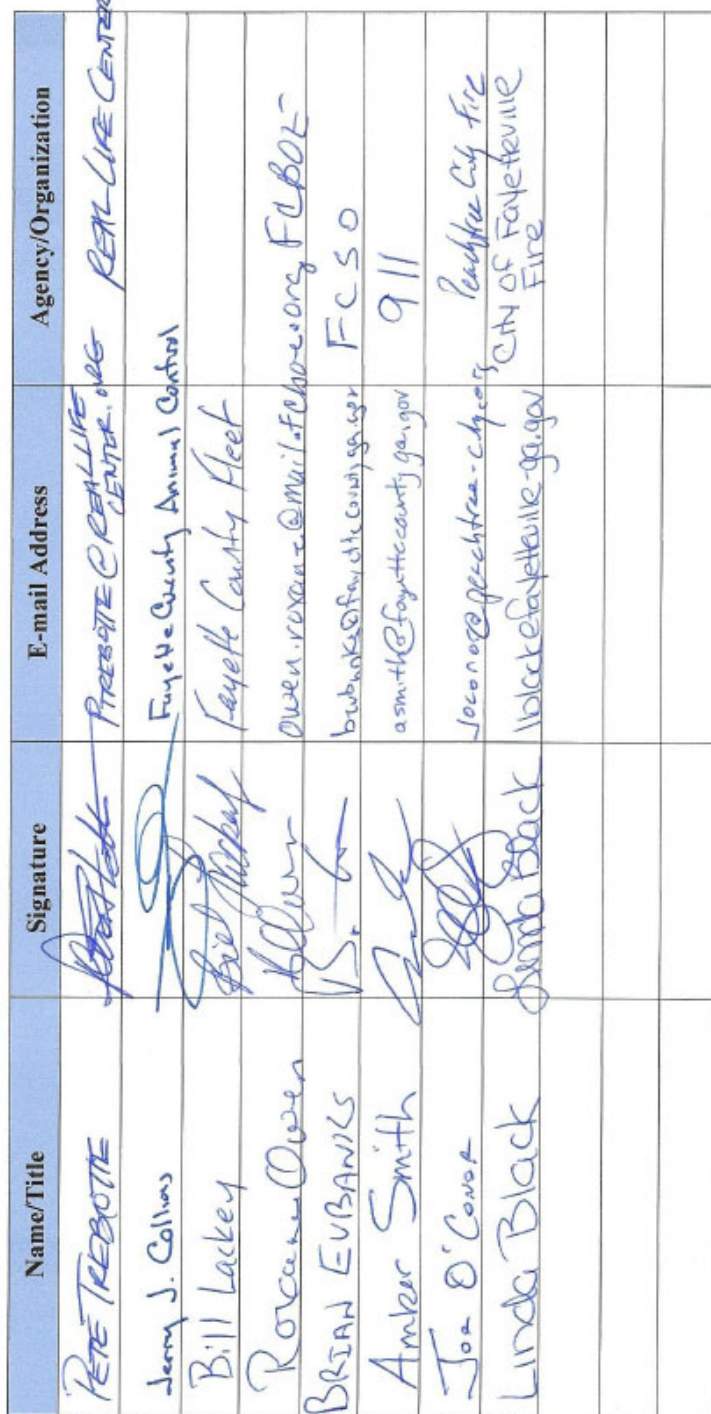 Name/Title Signature E-mail Address Agency/Organization
PETE TREBOTTE PTREBOTTE@REALLIFE CENTER.ORG REAL LIFE CENTER
Jerry J. Collins Fayette County Animal Control
Bill Lackey Bill Lackey Fayette County Fleet
Roxanne Owen owen.roxanne@mail.fcboe.org FCBOE
BRIAN EUBANKS beubanks@fayettecountyga.gov FCSO
Amber Smith asmith@fayettecountyga.gov 911
Joe O'Conor joconor@peachtree-city.org Peachtree City Fire
Linda Black Linda Black lblack@fayetteville-ga.gov City of Fayetteville
Fire